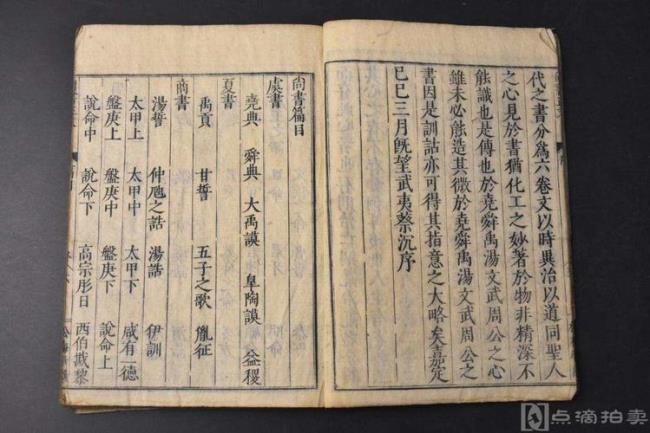 代之書分爲六卷文以時異治以道同聖人
之心見於書猶化工之妙著於物非精深不
能識也是傳也於堯舜禹湯文武周公之心
雖未必能造其微於堯舜禹湯文武周公之
書因是訓詁亦可得其指意之大略矣嘉定
己巳三月既望武夷蔡沉序
尚書篇目
虞書
堯典 舜典 大禹謨 皐陶謨 益稷
夏書
禹貢 甘誓 五子之歌 胤征
商書
湯誓 仲虺之誥 湯誥 伊訓
太甲上 太甲中 太甲下 咸有一德
盤庚上 盤庚中 盤庚下 說命上
說命中 說命下 高宗肜日 西伯戡黎
点滴拍卖